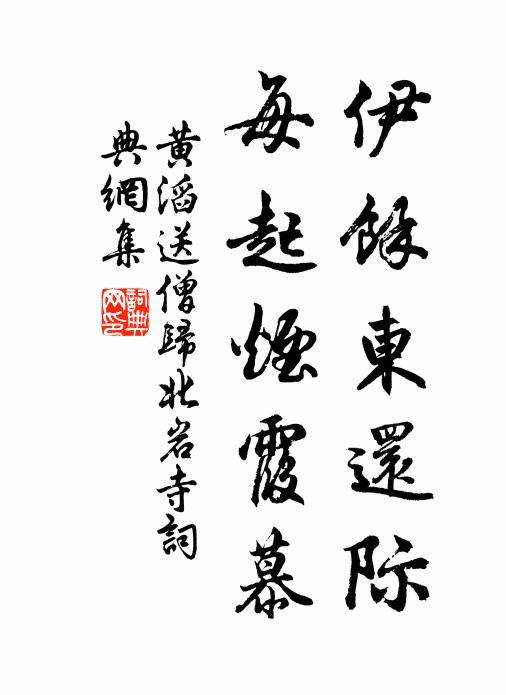 伊餘東還際
每起煙霞慕
黃滔送僧歸北岩寺詞
典網集
詞典網印